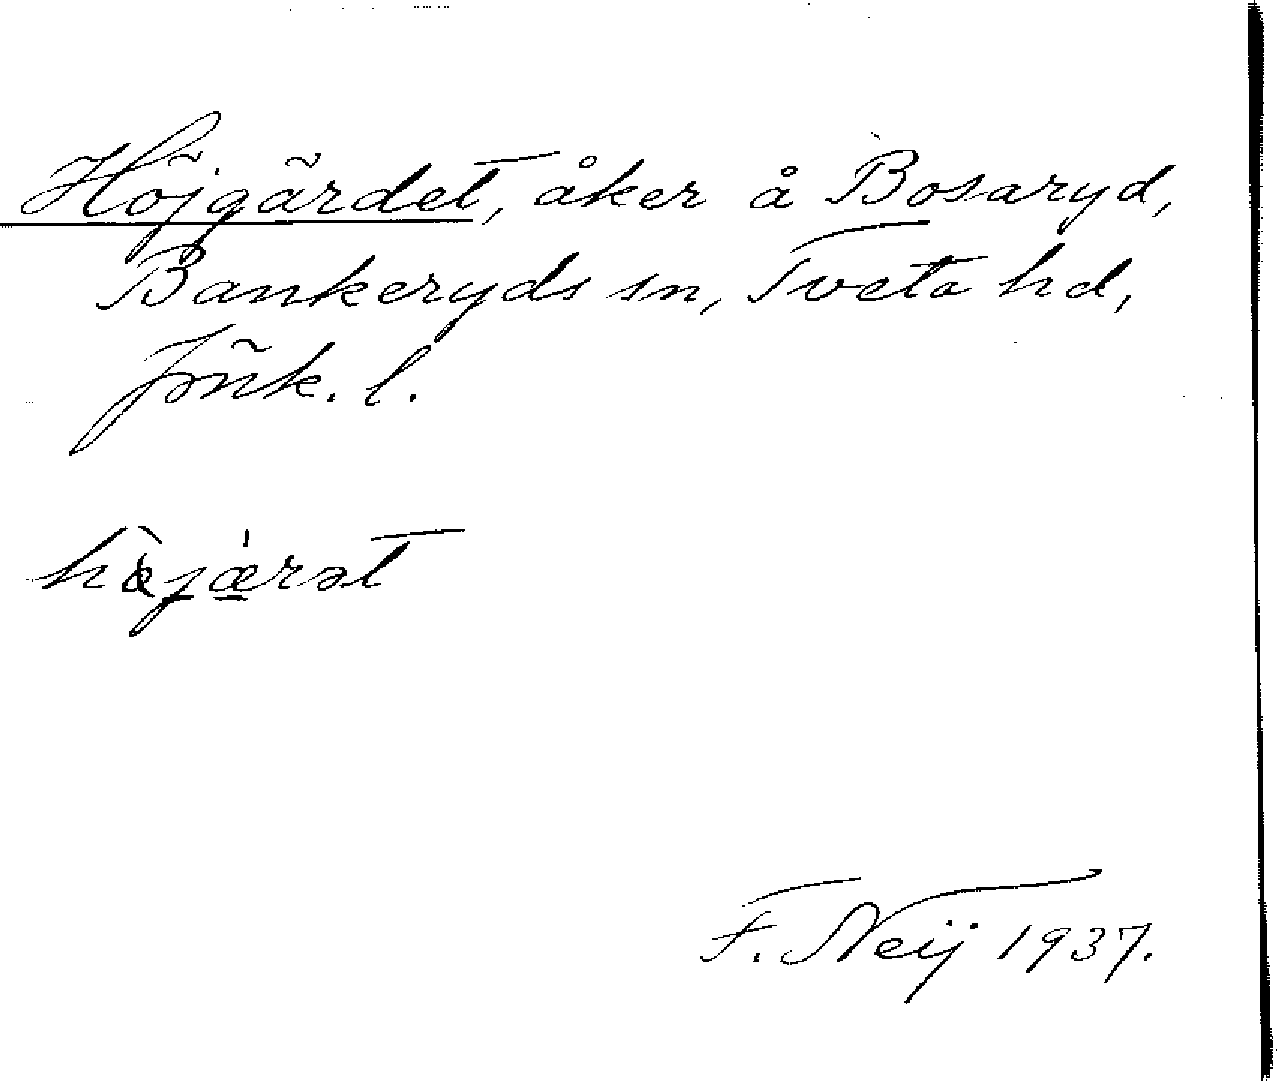 Höjgärdet, åker å Bosaryd,
Bankeryds sn, Tveta hd,
Jönk. l.
F. Neij 1937.